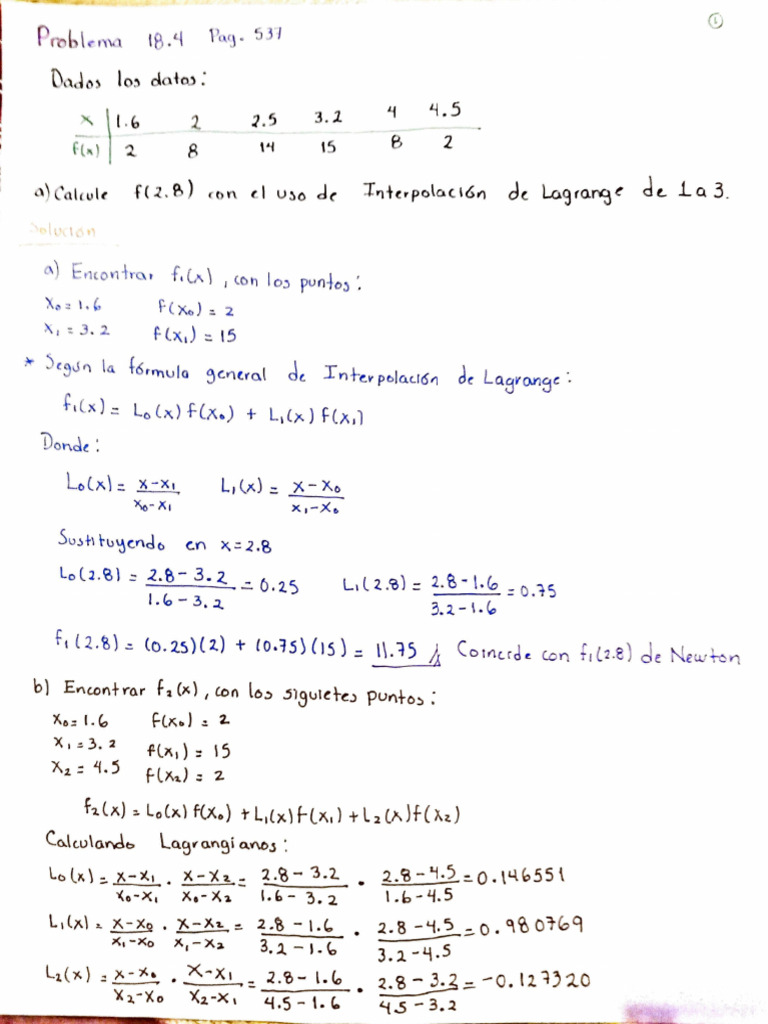 ①
Problema 18.4 Pag. 537
Dados los datos:
x | 1.6 2 2.5 3.2 4 4.5
f(x) | 2 8 14 15 8 2
a) Calcule f(2.8) con el uso de Interpolación de Lagrange de 1 a 3.
Solución
a) Encontrar f₁(x), con los puntos:
x₀ = 1.6 f(x₀) = 2
x₁ = 3.2 f(x₁) = 15
* Según la fórmula general de Interpolación de Lagrange:
f₁(x) = L₀(x) f(x₀) + L₁(x) f(x₁)
Donde:
L₀(x) = (x-x₁)/(x₀-x₁) L₁(x) = (x-x₀)/(x₁-x₀)
Sustituyendo en x=2.8
L₀(2.8) = (2.8-3.2)/(1.6-3.2) = 0.25 L₁(2.8) = (2.8-1.6)/(3.2-1.6) = 0.75
f₁(2.8) = (0.25)(2) + (0.75)(15) = 11.75 // Coincide con f₁(2.8) de Newton
b) Encontrar f₂(x), con los siguietes puntos:
x₀ = 1.6 f(x₀) = 2
x₁ = 3.2 f(x₁) = 15
x₂ = 4.5 f(x₂) = 2
f₂(x) = L₀(x) f(x₀) + L₁(x) f(x₁) + L₂(x) f(x₂)
Calculando Lagrangianos:
L₀(x) = (x-x₁)/(x₀-x₁) · (x-x₂)/(x₀-x₂) = (2.8-3.2)/(1.6-3.2) · (2.8-4.5)/(1.6-4.5) = 0.146551
L₁(x) = (x-x₀)/(x₁-x₀) · (x-x₂)/(x₁-x₂) = (2.8-1.6)/(3.2-1.6) · (2.8-4.5)/(3.2-4.5) = 0.980769
L₂(x) = (x-x₀)/(x₂-x₀) · (x-x₁)/(x₂-x₁) = (2.8-1.6)/(4.5-1.6) · (2.8-3.2)/(4.5-3.2) = -0.127320